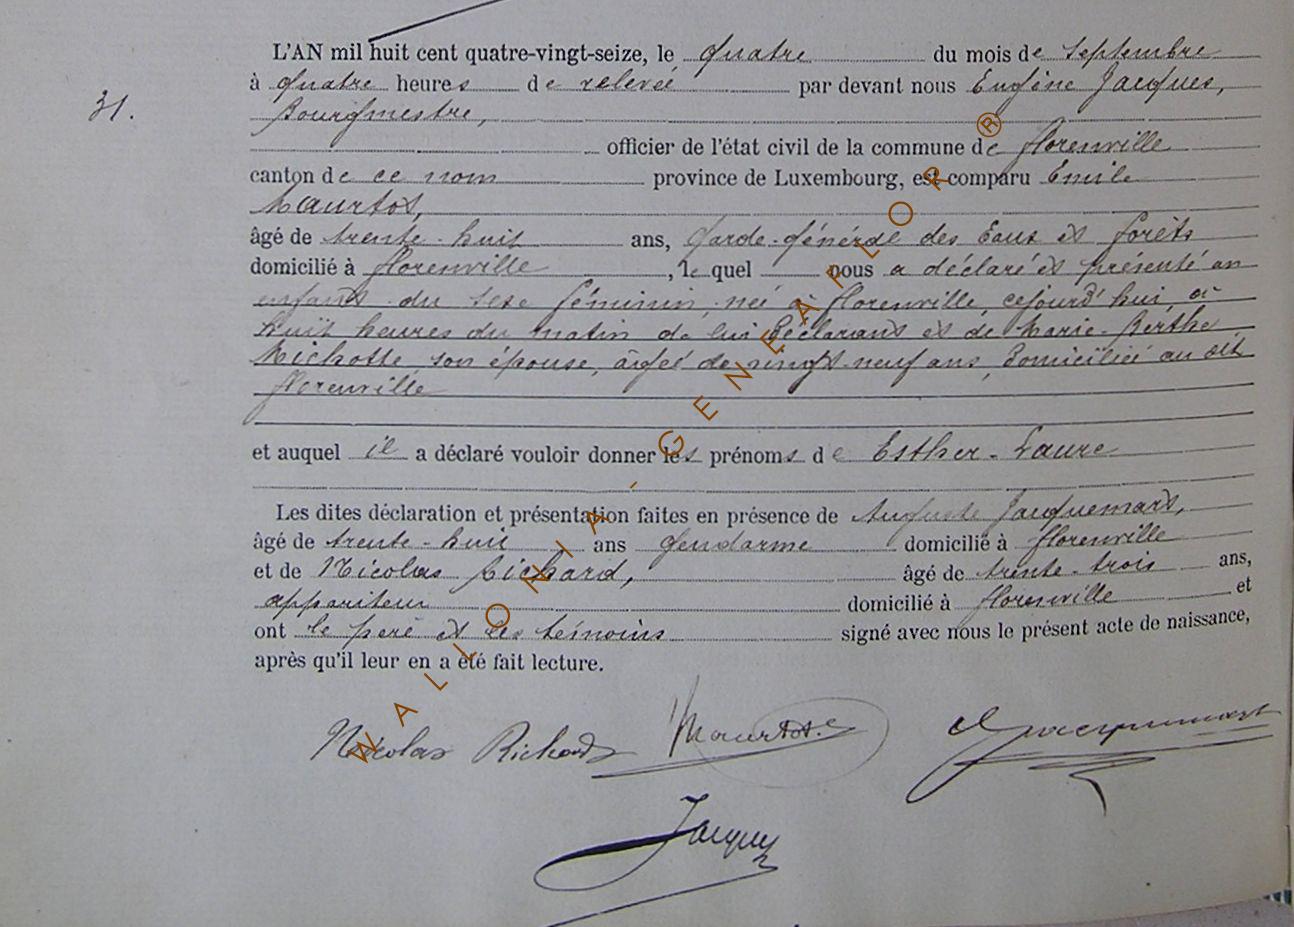 L'AN mil huit cent quatre-vingt-seize, le quatre du mois de septembre
à quatre heures de relevée par devant nous Eugène Jacques,
31.
Bourgmestre,
officier de l'état civil de la commune de Florenville
canton de ce nom province de Luxembourg, est comparu Emile
Maurtot,
âgé de trente-huit ans, Garde-Général des Eaux et Forêts
domicilié à Florenville, le quel nous a déclaré et présenté un
enfant du sexe féminin, née à Florenville, cejourd'hui, à
huit heures du matin de lui déclarant et de Marie-Berthe
Michotte son épouse, âgée de vingt-neuf ans, domiciliée au dit
Florenville
et auquel il a déclaré vouloir donner les prénoms de Esther-Laure
Les dites déclaration et présentation faites en présence de Auguste Jacquemart,
âgé de trente-huit ans gendarme domicilié à Florenville
et de Nicolas Richard, âgé de trente-trois ans,
appariteur domicilié à Florenville et
ont le père et les témoins signé avec nous le présent acte de naissance,
après qu'il leur en a été fait lecture.
Nicolas Richard Maurtot. Jacquemart
Jacques
WALLONIA - GENEAPLOR ®